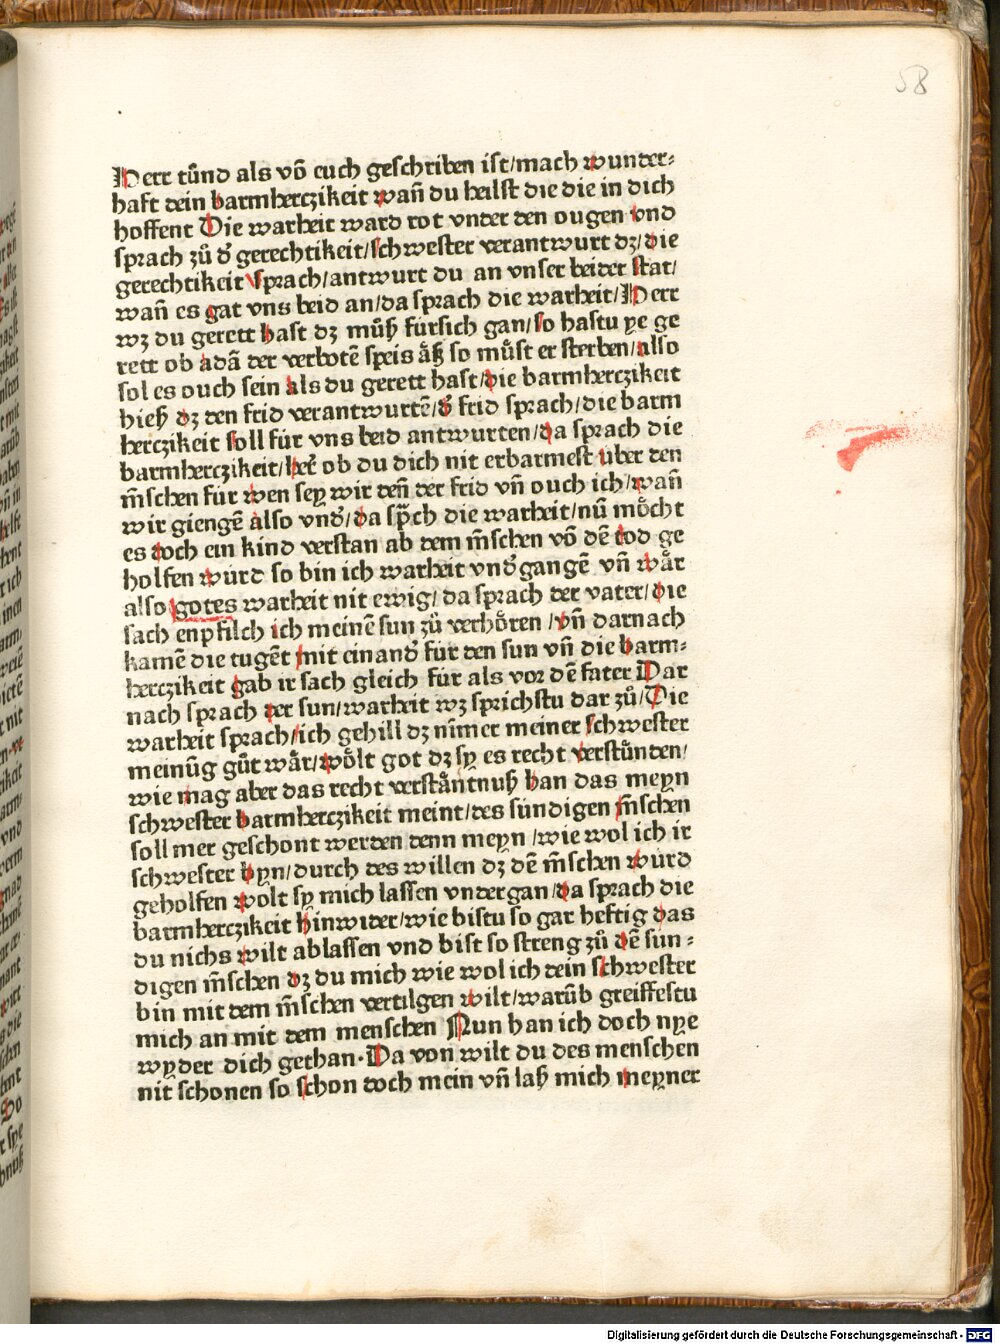 58
Herr tůnd als võ euch geschriben ist/mach wunder⸗
haft dein barmherczikeit wañ du heilst die die in dich
hoffent Die warheit ward rot vnder den ougen vnd
sprach zů d᷑ gerechtikeit/schwester verantwurt dz/die
gerechtikeit sprach/antwurt du an vnser beider stat/
wañ es gat vns beid an/da sprach die warheit/Herr
wz du gerett hast dz můß fürsich gan/so hastu ye ge
rett ob adã der verbotẽ speis åß so můst er sterben/also
sol es ouch sein als du gerett hast/die barmherczikeit
hieß dz den frid verantwurtẽ/d᷑ frid sprach/die barm
herczikeit soll für vns beid antwurten/da sprach die
barmherczikeit/her᷑ ob du dich nit erbarmest über den
m̃schen für wen sey wir deñ der frid vñ ouch ich/wañ
wir giengẽ also vnd᷑/da sp̃ch die warheit/nũ möcht
es doch ein kind verstan ab dem m̃schen võ dẽ tod ge
holfen wurd so bin ich warheit vnd᷑gangẽ vñ wår
also gotes warheit nit ewig/da sprach der vater/die
sach enpfilch ich meinẽ sun zů verhören/vñ darnach
kamẽ die tugẽt mit einand᷑ für den sun vñ die barm⸗
herczikeit gab ir sach gleich für als vor dẽ fater Dar
nach sprach der sun/warheit wz sprichstu dar zů/Die
warheit sprach/ich gehill dz nim̃er meiner schwester
meinũg gůt wår/wölt got dz sy es recht verstůnden/
wie mag aber das recht verståntnuß han das meyn
schwester barmherczikeit meint/des sündigen m̃schen
soll mer geschont werden denn meyn/wie wol ich ir
schwester byn/durch des willen dz dẽ m̃schen wurd
geholfen wolt sy mich lassen vndergan/da sprach die
barmherczikeit hinwider/wie bistu so gar heftig das
du nichs wilt ablassen vnd bist so streng zů dẽ sün⸗
digen m̃schen dz du mich wie wol ich dein schwester
bin mit dem m̃schen vertilgen wilt/warũb greiffestu
mich an mit dem menschen Nun han ich doch nye
wyder dich gethan·Da von wilt du des menschen
nit schonen so schon doch mein vñ laß mich meyner
Digitalisierung gefördert durch die Deutsche Forschungsgemeinschaft - DFG